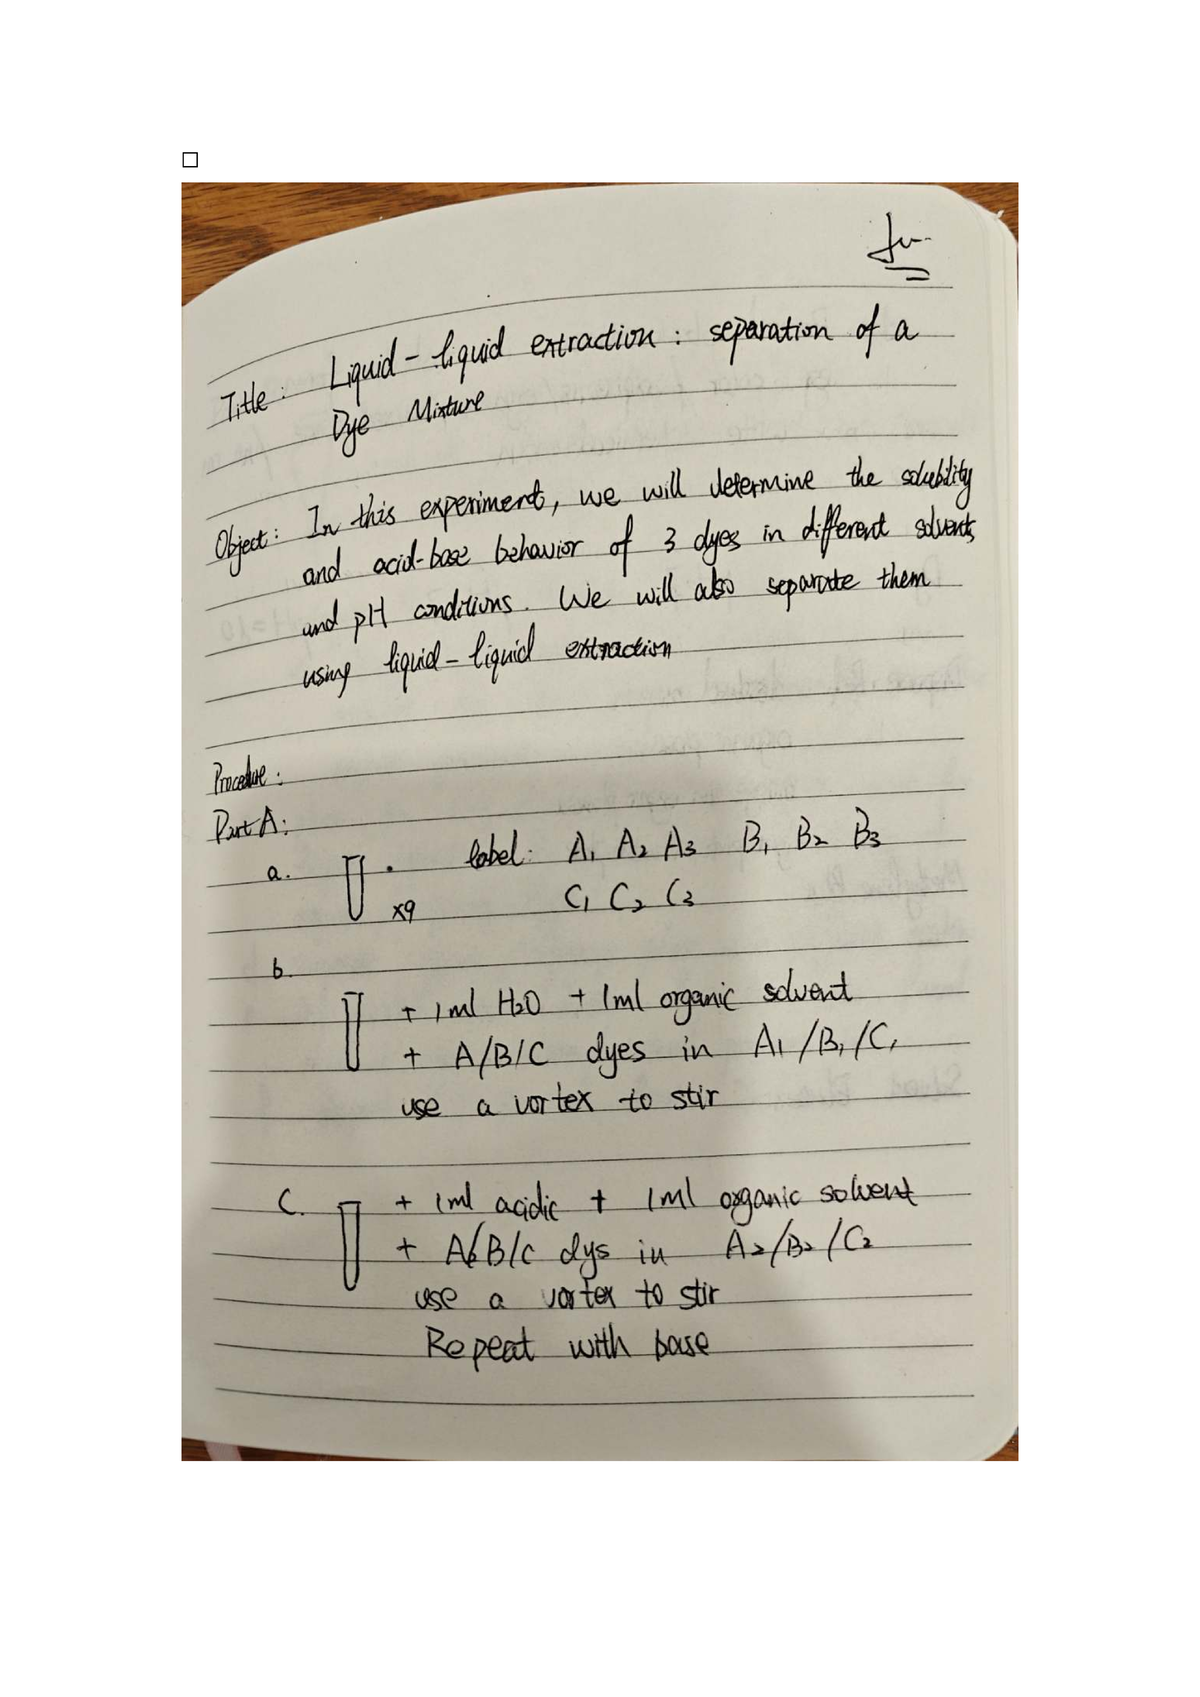 Title: Liquid-liquid extraction: separation of a
Dye Mixture
Object: In this experiment, we will determine the solubility
and acid-base behavior of 3 dyes in different solvents
and pH conditions. We will also separate them
using liquid-liquid extraction
Procedure:
Part A:
a. label: A1 A2 A3 B1 B2 B3
x9 C1 C2 C3
b.
+ 1ml H2O + 1ml organic solvent
+ A/B/C dyes in A1/B1/C1
use a vortex to stir
C. + 1ml acidic + 1ml organic solvent
+ A/B/C dys in A2/B2/C2
use a vortex to stir
Repeat with base